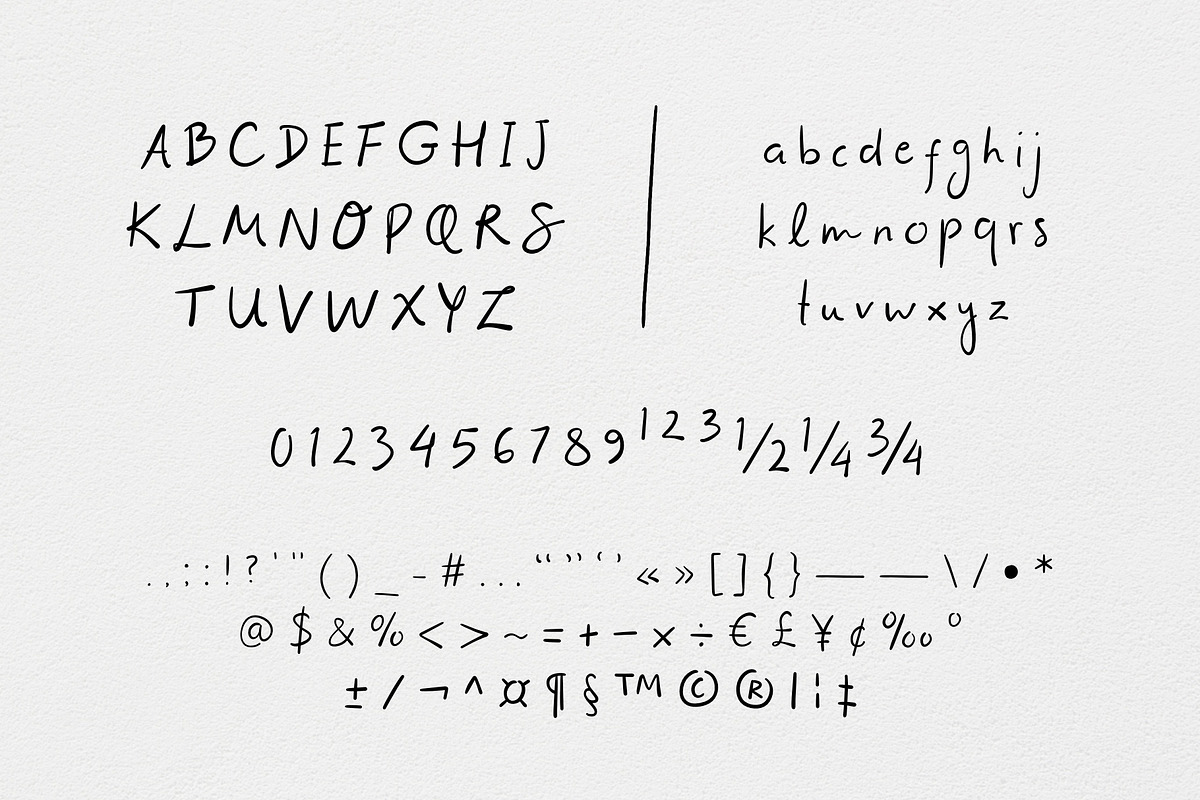 ABCDEFGHIJ
KLMNOPQRS
TUVWXYZ
abcdefghij
klmnopqrs
tuvwxyz
0123456789¹²³½¼¾
.,;:!?'"()_-#...“”‘’«»[]{}——\/•*
@$&%<>~=+−×÷€£¥¢‰°
±/¬^¤¶§™©®|¦‡